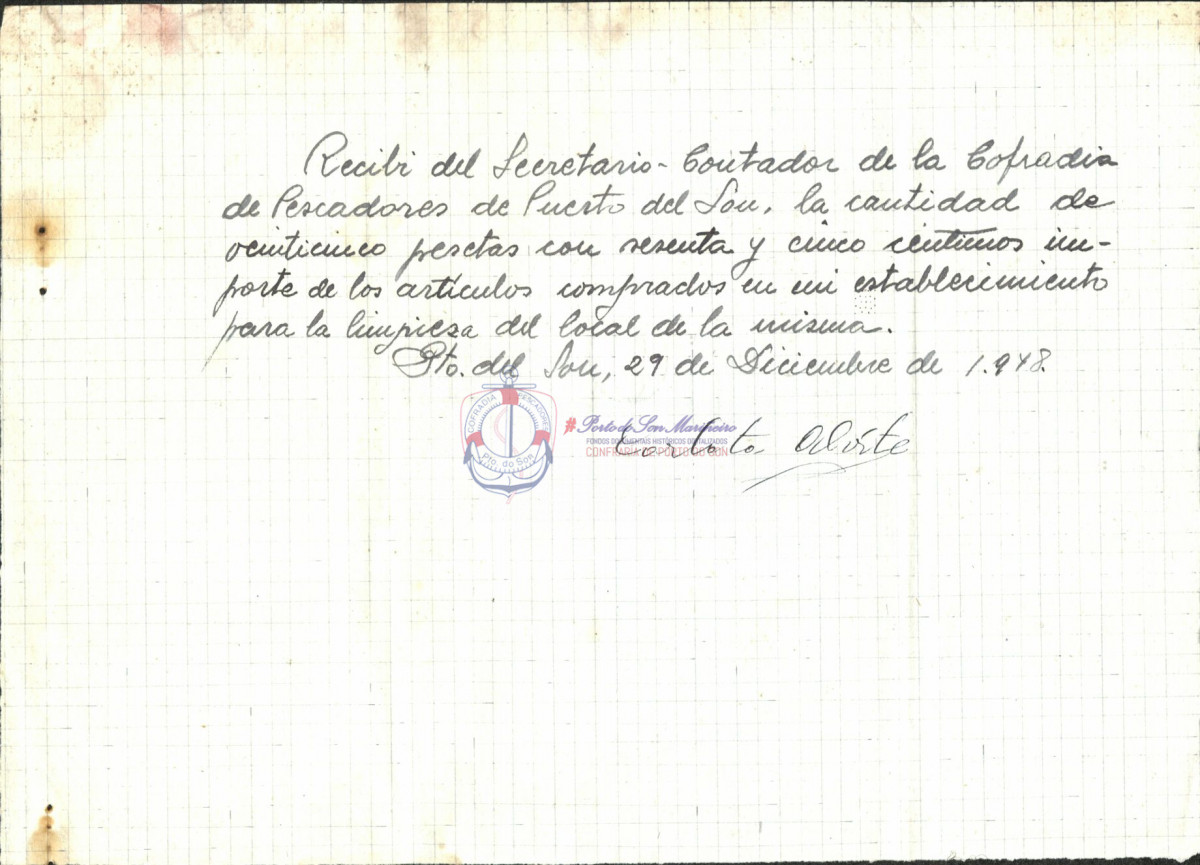 Recibi del Secretario-Contador de la Cofradia
de Pescadores de Puerto del Son, la cantidad de
veinticinco pesetas con sesenta y cinco centimos im-
porte de los artículos comprados en mi establecimiento
para la limpieza del local de la misma.
Pto. del Son, 29 de Diciembre de 1.948.
COFRADIA PESCADORES
Pto. do Son
#Porto do Son Mariñeiro
FONDOS DOCUMENTAIS HISTÓRICOS DIXITALIZADOS
CONFRARÍA DE PORTO DO SON